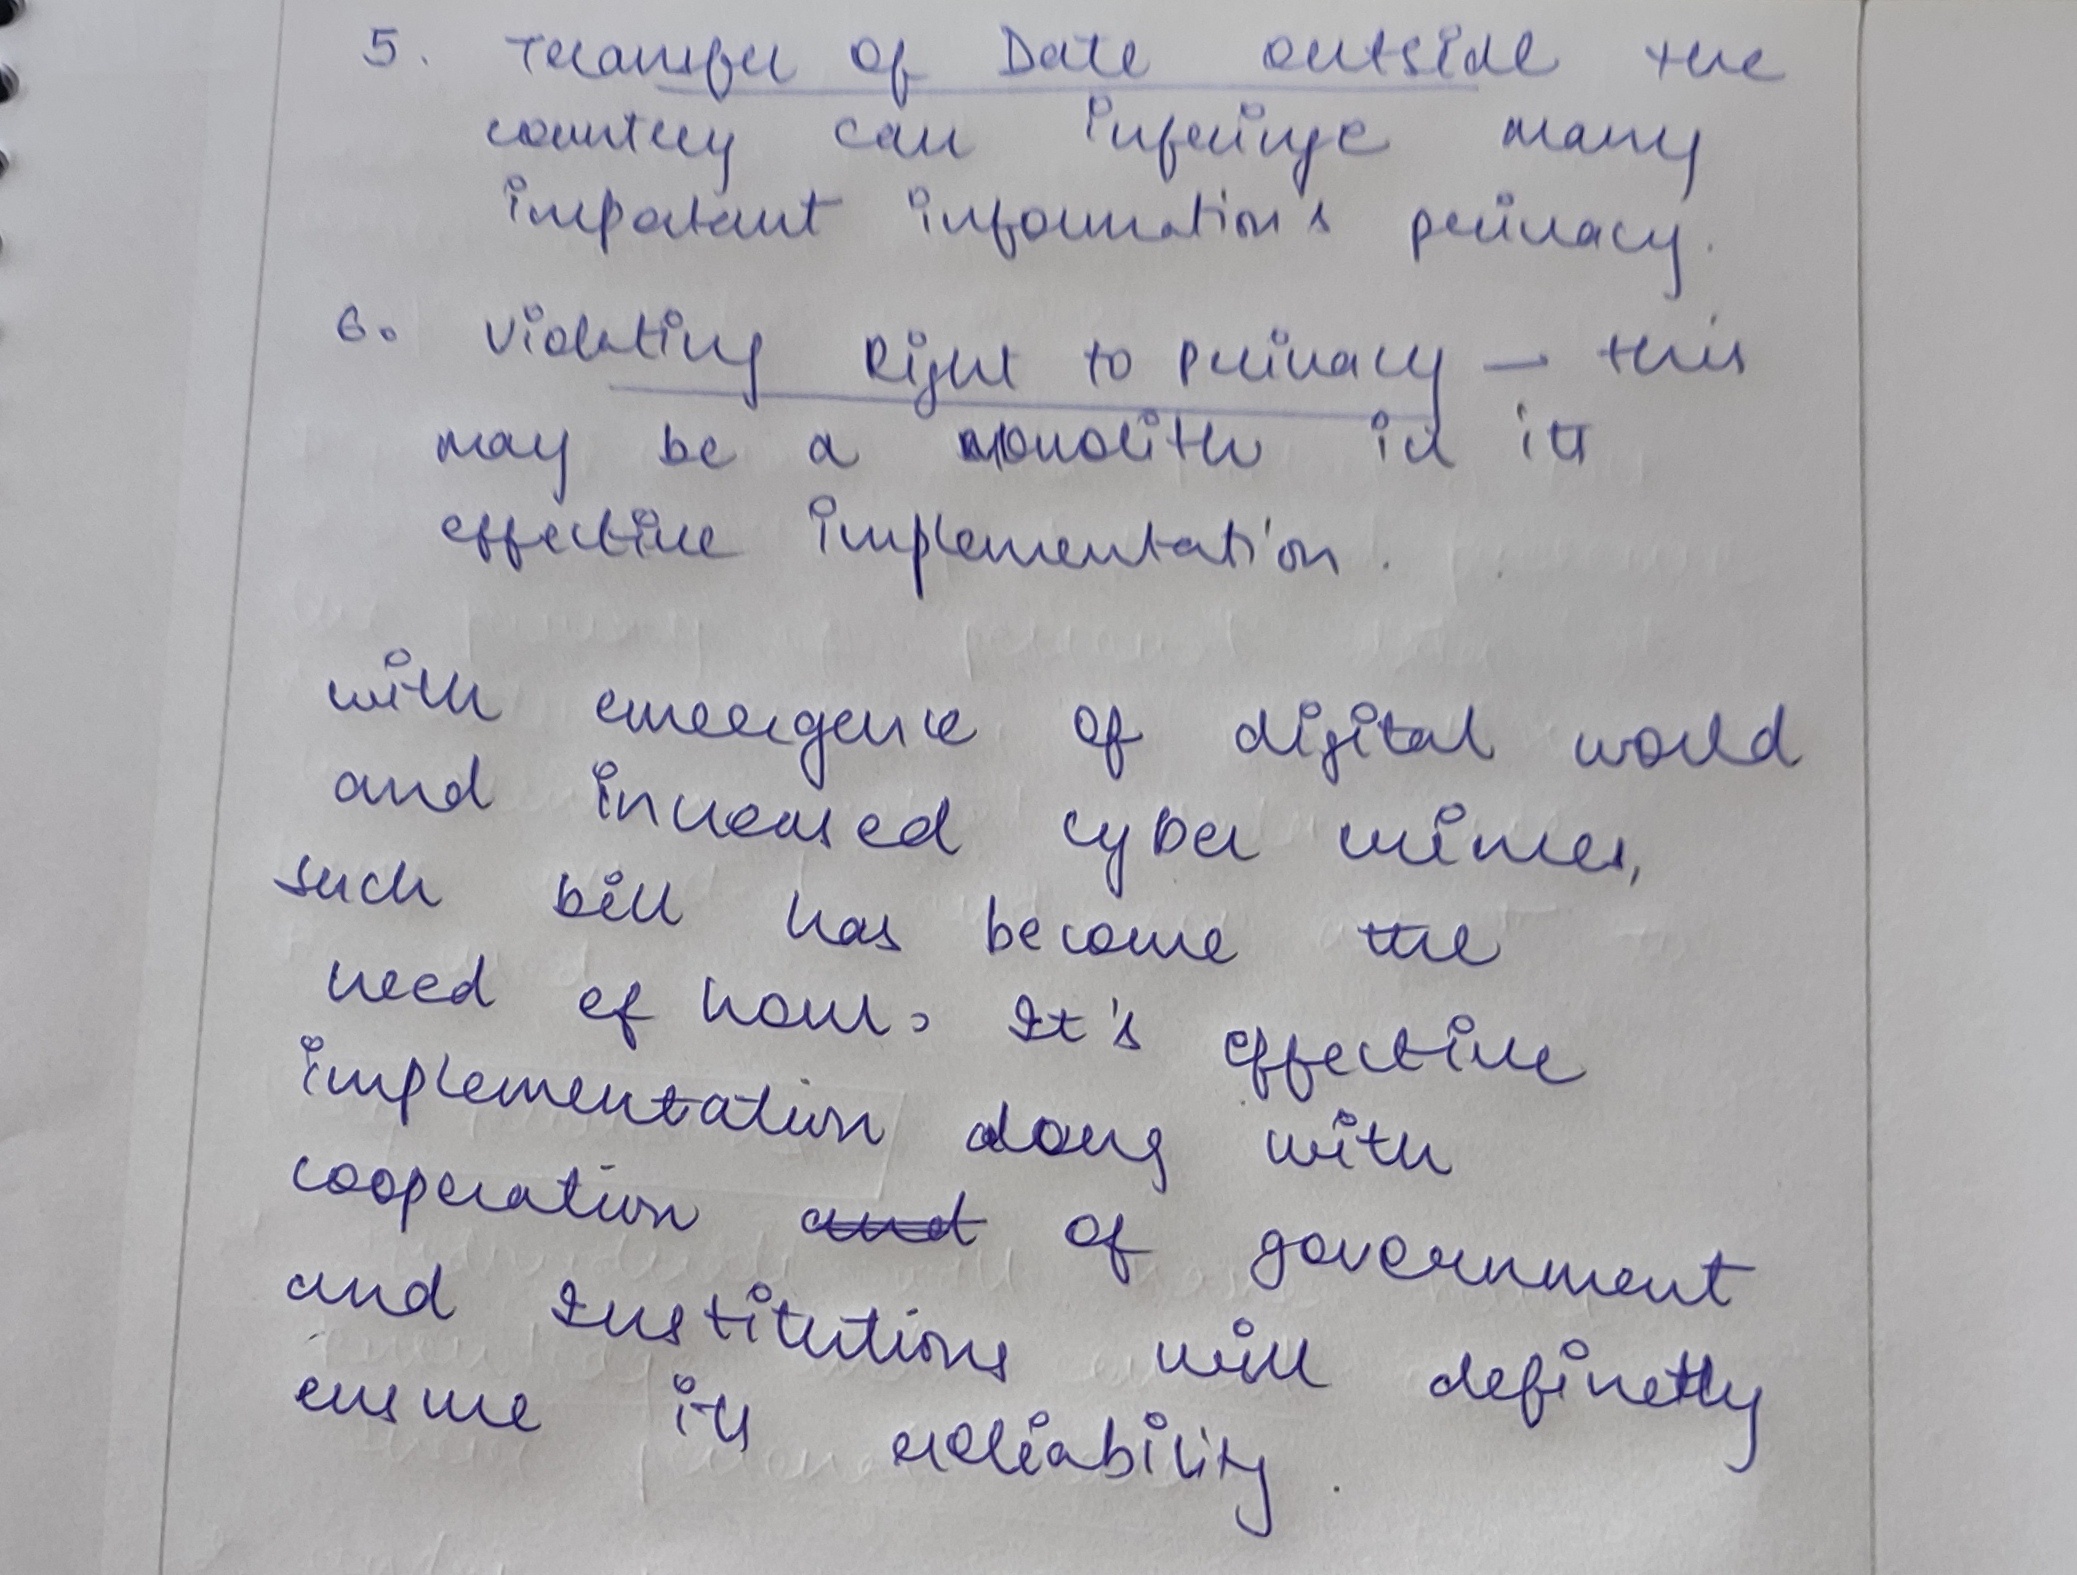 5. Transfer of Data outside the
country can infringe many
important information's privacy.
6. Violating Right to privacy — this
may be a monolith in its
effective implementation.
with emergence of digital world
and increased cyber crimes,
such bill has become the
need of hour. It's effective
implementation along with
cooperation and of government
and Institutions will definetly
ensure its reliability.